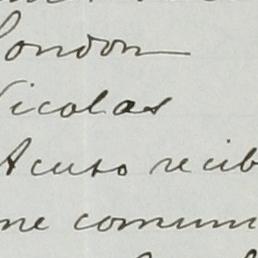 London
Nicolas
Acuso recib
me comuni